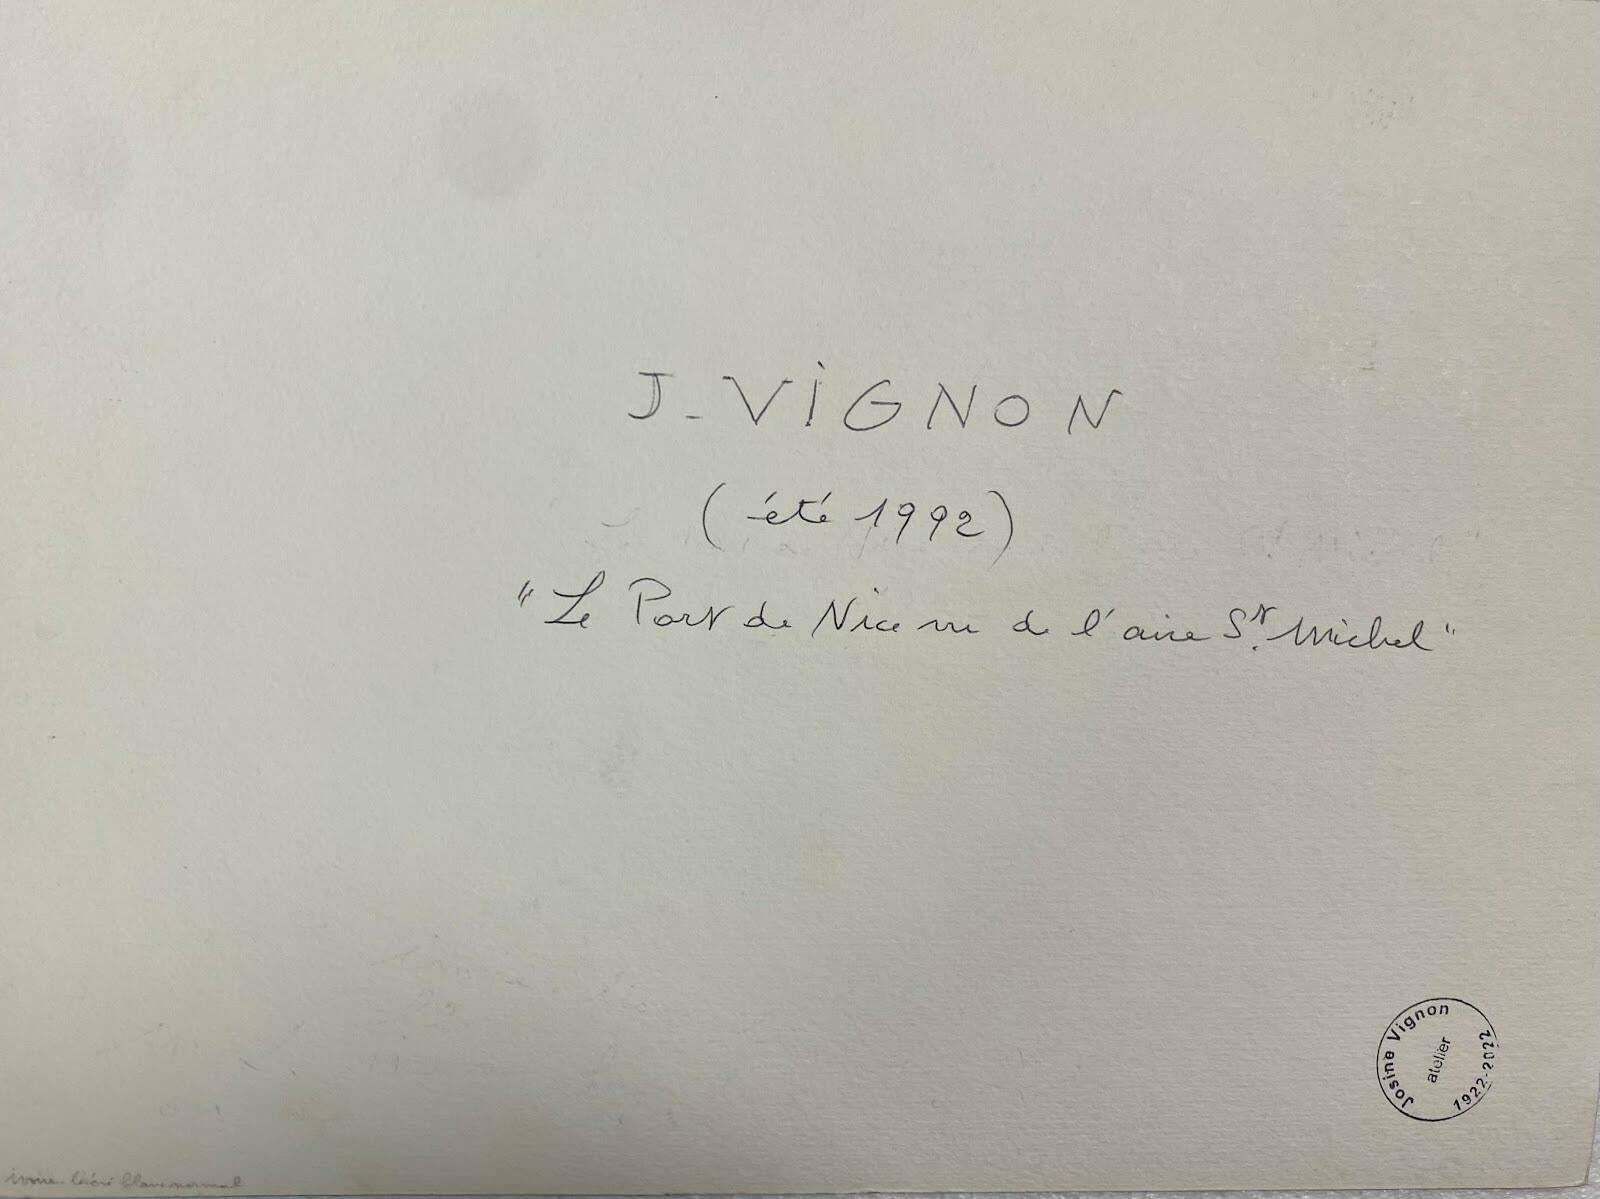 J. VIGNON
(été 1992)
"Le Port de Nice vu de l'aire St. Michel"
Josine Vignon
atelier
1922-2022
ivoire liséré blanc normal